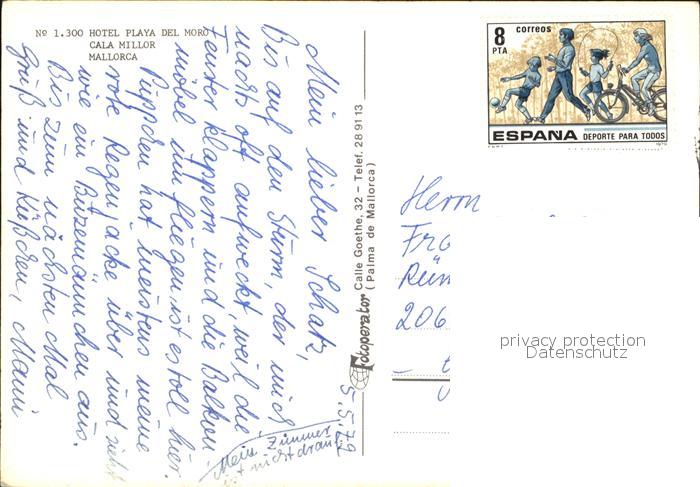 Nº 1.300 HOTEL PLAYA DEL MORO
CALA MILLOR
MALLORCA
Mein lieber Schatz,
Bis auf den Sturm, der mich
nachts oft aufweckt, weil die
Fenster klappern und die Balkon
möbel umfliegen ist es toll hier.
Püppchen hat meistens meine
rote Regenjacke über und sieht
wie ein Butzemännchen aus.
Bis zum nächsten Mal
Gruß und Küßchen,
5.5.79
Mein Zimmer
ist nicht drauf
Fotoperator
Calle Goethe, 32 – Telef. 28 91 13
( Palma de Mallorca )
8
PTA
correos
ESPAÑA
DEPORTE PARA TODOS
1979
Herrn
Fra
Rüm
206
privacy protection
Datenschutz